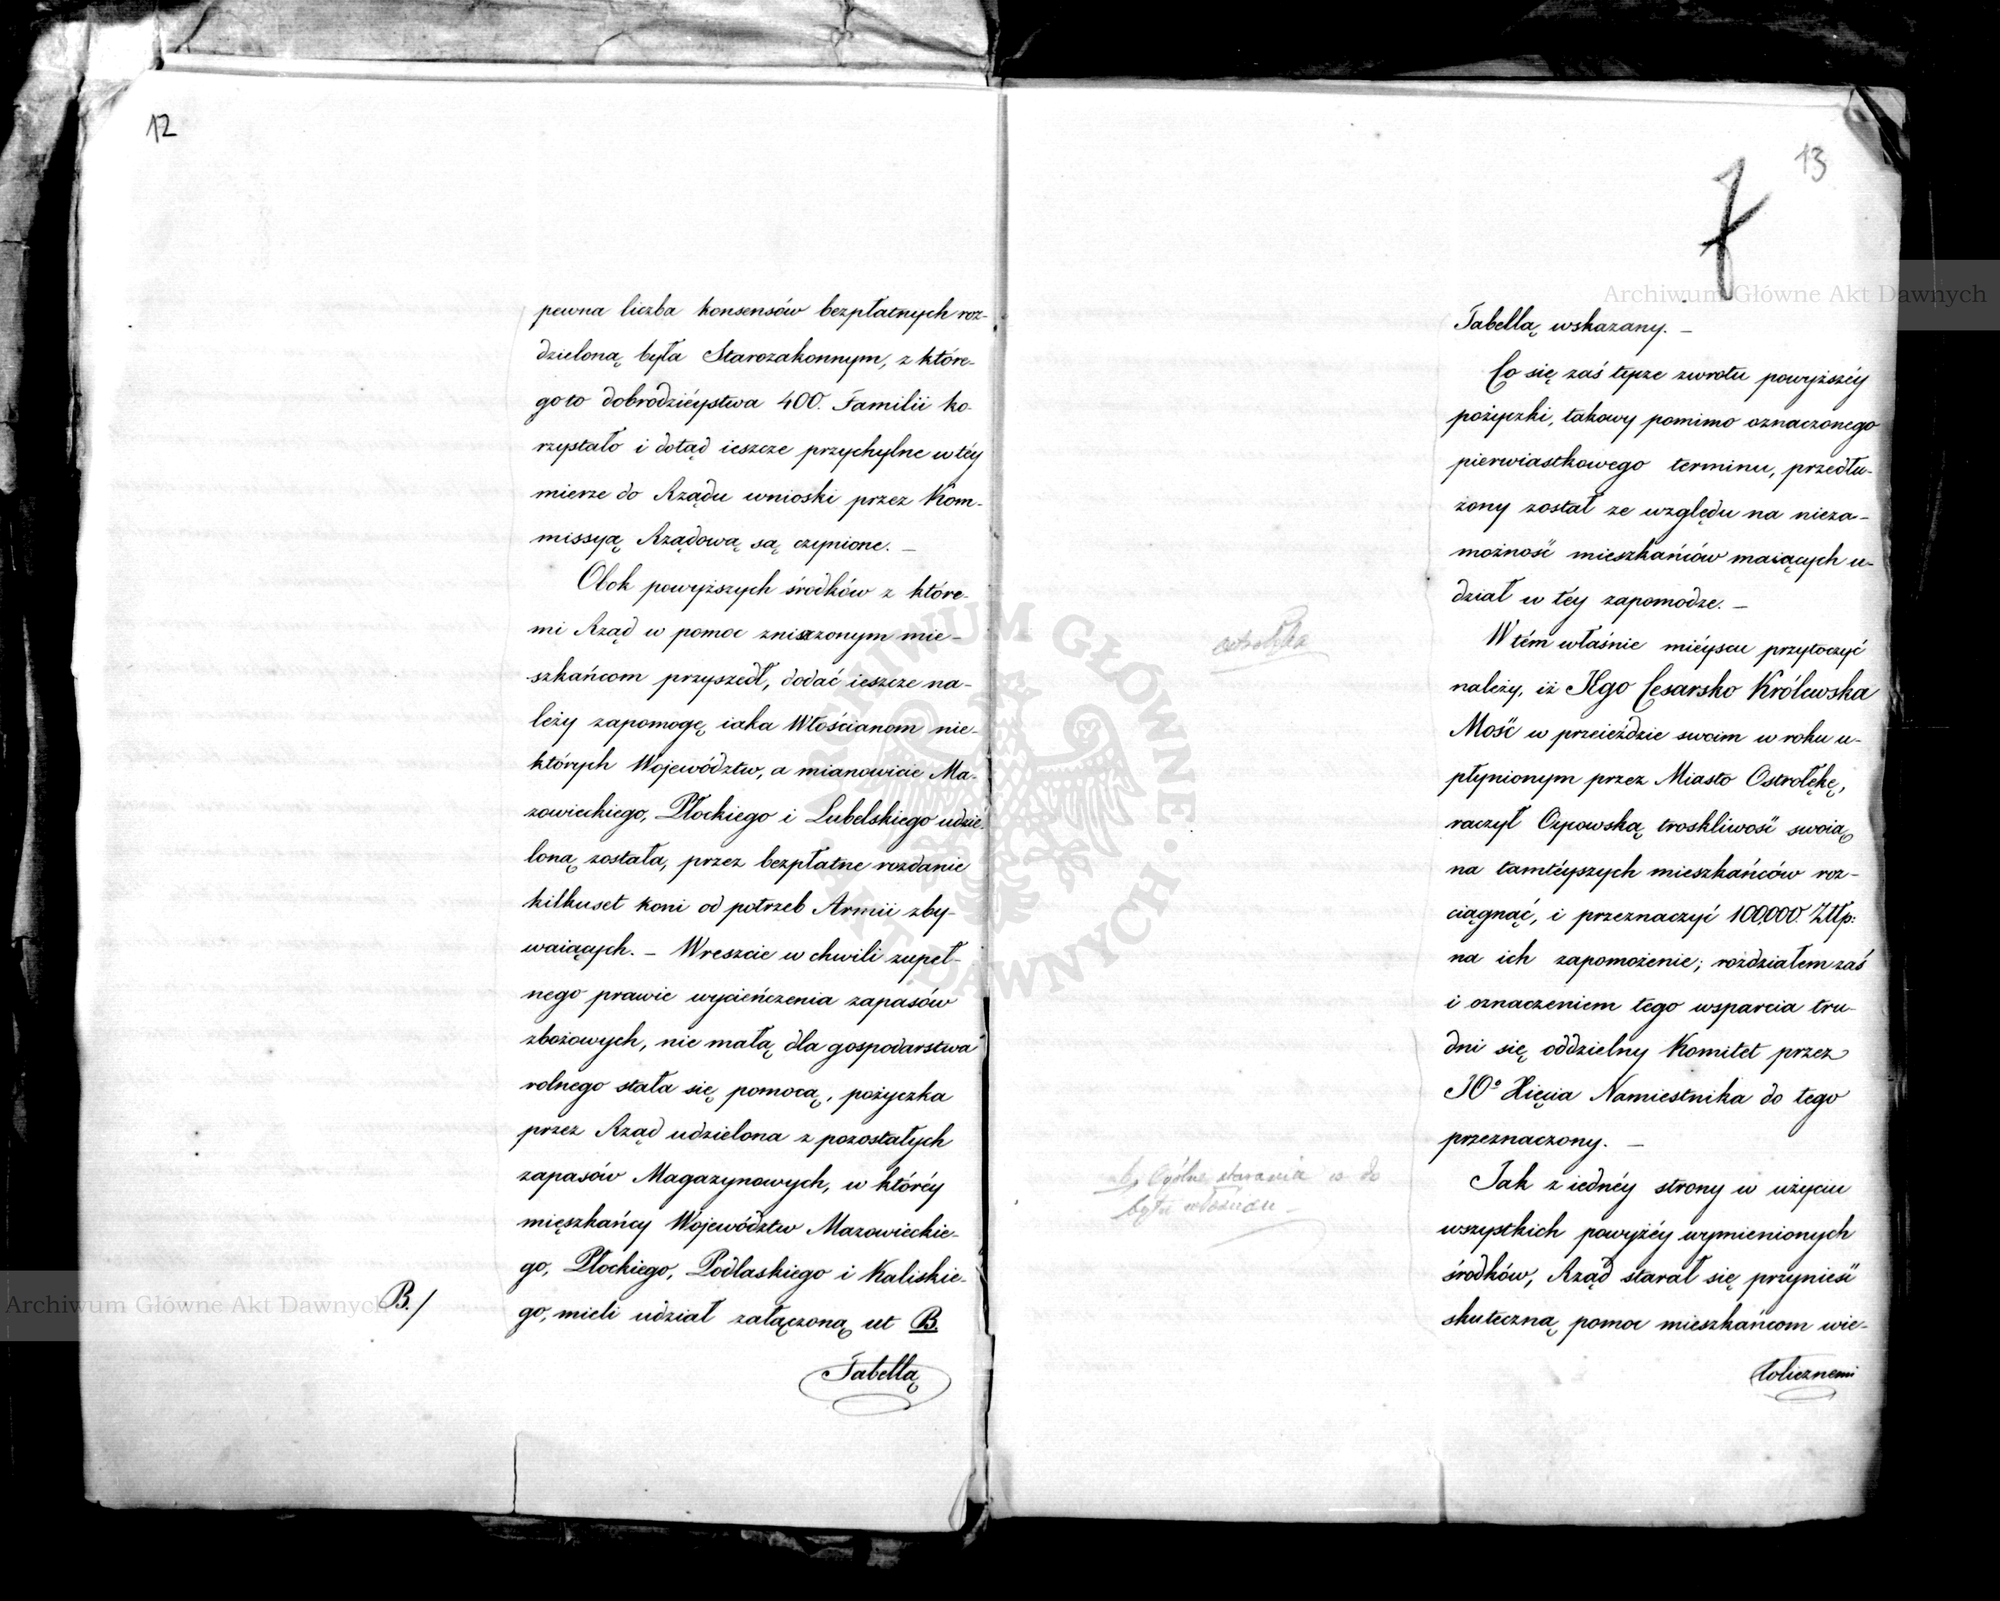 12
pewna liczba konsensów bezpłatnych roz-
dzieloną była Starozakonnym, z które-
goto dobrodzieystwa 400. Familii ko-
rzystało i dotąd ieszcze przychylne w téy
mierze do Rządu wnioski przez Kom-
missyą Rządową są czynione. –
Obok powyższych środków z które-
mi Rząd w pomoc zniszczonym mie-
szkańcom przyszedł, dodać ieszcze na-
leży zapomogę iaka Włościanom nie-
których Województw, a mianowicie Ma-
zowieckiego, Płockiego i Lubelskiego udzie-
loną została, przez bezpłatne rozdanie
kilkuset koni od potrzeb Armii zby-
waiących. – Wreszcie w chwili zupeł-
nego prawie wycieńczenia zapasów
zbożowych, nie małą dla gospodarstwa
rolnego stała się pomocą, pożyczka
przez Rząd udzielona z pozostałych
zapasów Magazynowych, w któréy
mięszkańcy Województw Mazowieckie-
go, Płockiego, Podlaskiego i Kaliskie-
B./ go, mieli udział załączoną ut B.
Tabellą
13
7
Tabellą wskazany. –
Co się zaś tycze zwrotu powyższéy
pożyczki, takowy pomimo oznaczonego
pierwiastkowego terminu, przedłu-
żony został ze względu na nieza-
możność mieszkańców maiących u-
dział w téy zapomodze. –
ostrołęka
W tém właśnie mieyscu przytoczyć
należy, iż Jego Cesarsko Królewska
Mość w przeieździe swoim w roku u-
płynionym przez Miasto Ostrołękę,
raczył Oycowską troskliwość swoią
na tamtéyszych mieszkańców roz-
ciągnąć, i przeznaczyć 100,000. Złłp:
na ich zapomożenie; rozdziałem zaś
i oznaczeniem tego wsparcia tru-
dni się oddzielny Komitet przez
JOº Xięcia Namiestnika do tego
przeznaczony. –
b, Ogólne starania co do
bytu włościan –
Jak z iednéy strony w użyciu
wszystkich powyżéy wymienionych
środków, Rząd starał się przynieść
skuteczną pomoc mieszkańcom wie-
lolicznemi
Archiwum Główne Akt Dawnych
Archiwum Główne Akt Dawnych
ARCHIWUM GŁÓWNE AKT DAWNYCH